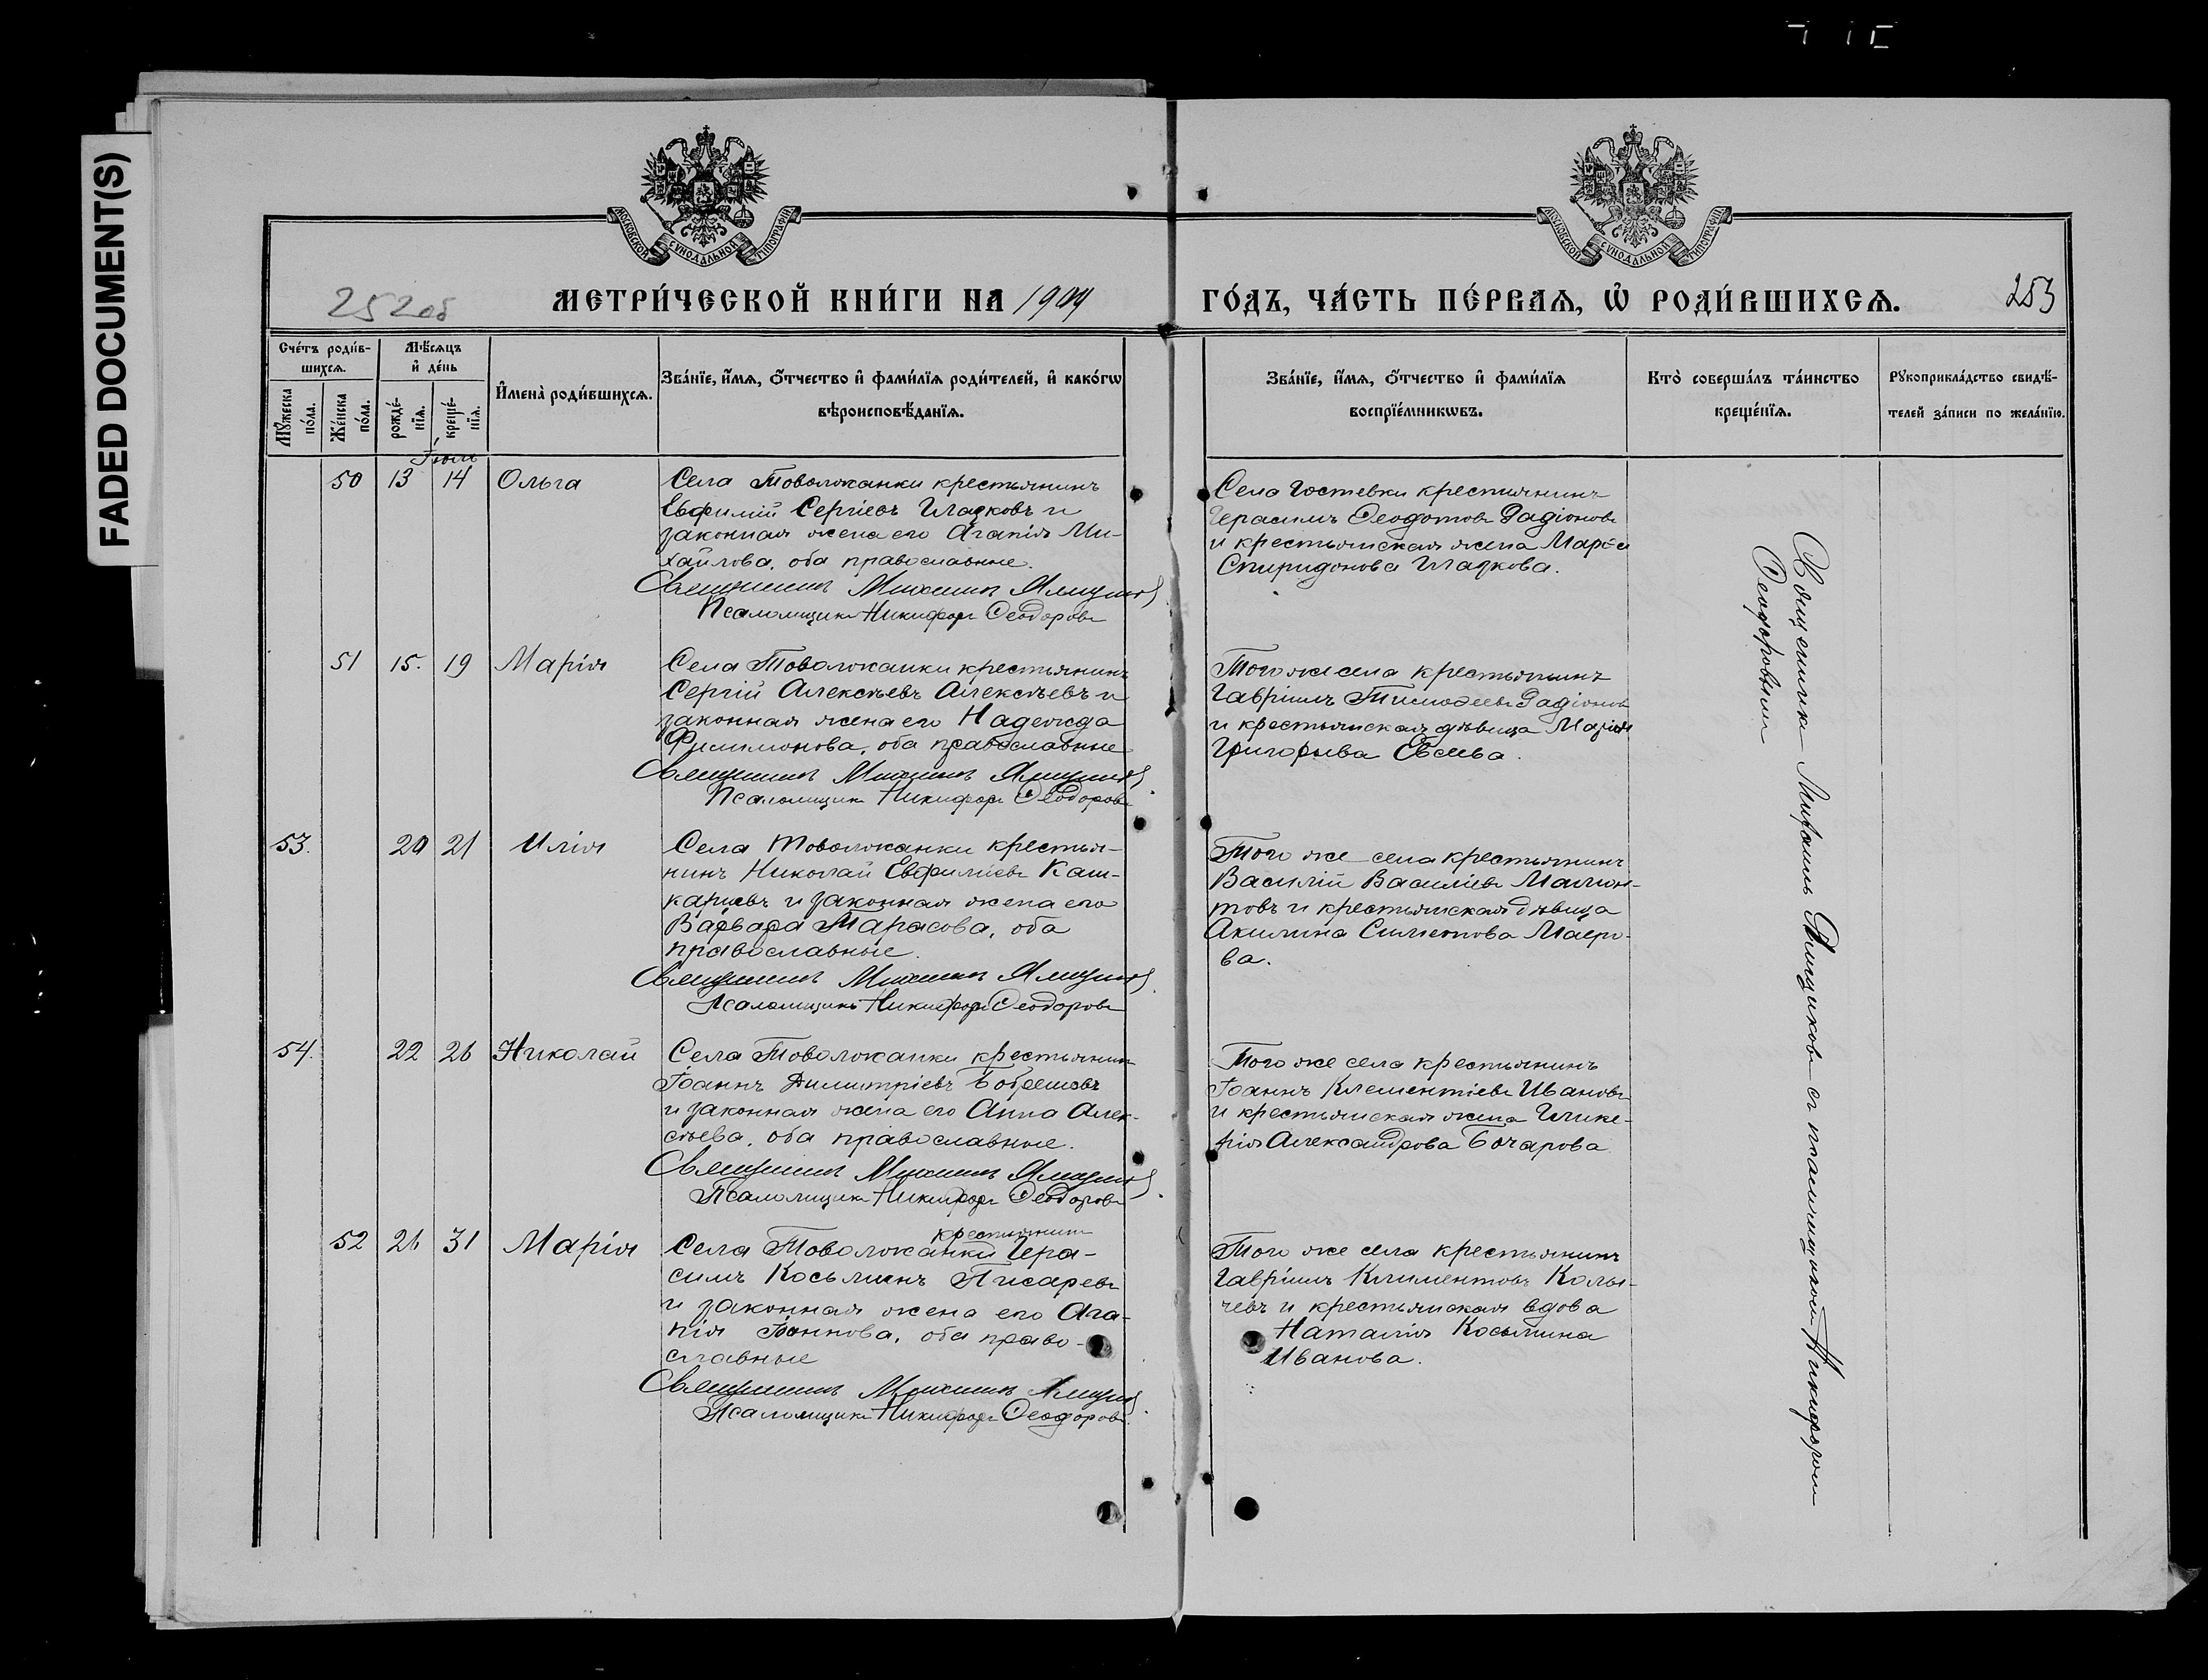 FADED DOCUMENT(S)
МОСКОВСКОЙ СѴНОДАЛЬНОЙ ТИПОГРАФІИ
МОСКОВСКОЙ СѴНОДАЛЬНОЙ ТИПОГРАФІИ
252об
МЕТРИ́ЧЕСКОЙ КНИ́ГИ НА 1904
ГО́ДЪ, ЧА́СТЬ ПЕ́РВАѦ, Ѡ҆ РОДИ́ВШИХСѦ.
253
Сче́тъ роди́в-
шихсѧ.
Мꙋ́жеска
по́ла.
Же́нска
по́ла.
Мѣ́сѧцъ
и҆ де́нь
рожде́-
нїѧ.
креще́-
нїѧ.
И҆мена̀ роди́вшихсѧ.
Зва́нїе, и҆́мѧ, ѻ҆́тчество и҆ фами́лїѧ роди́телей, и҆ како́гѡ
вѣроисповѣ́данїѧ.
Зва́нїе, и҆́мѧ, ѻ҆́тчество и҆ фами́лїѧ
воспрїе́мникѡвъ.
Кто̀ соверша́лъ та́инство
креще́нїѧ.
Рꙋкоприкла́дство свидѣ́-
телей за́писи по жела́нїю.
Іюль
50 13 14 Ольга
Села Товоложанки крестьянинъ
Евфимій Сергіевъ Гладковъ и
законная жена его Агапія Ми-
хайлова, оба православные.
Священникъ Михаилъ
Псаломщикъ Никифоръ Ѳеодоровъ
Села Гостевки крестьянинъ
Герасимъ Ѳеодотовъ Радіоновъ
и крестьянская жена Марѳа
Спиридонова Гладкова.
51 15. 19 Марія
Села Товоложанки крестьянинъ
Сергій Алексѣевъ Алексѣевъ и
законная жена его Надежда
Филимонова, оба православные
Священникъ Михаилъ
Псаломщикъ Никифоръ Ѳеодоровъ
Того же села крестьянинъ
Гавріилъ Тимоѳеевъ Радіоновъ
и крестьянская дѣвица Марія
Григорьева Евсѣева.
53. 20 21 Илія
Села Товоложанки крестья-
нинъ Николай Евфиміевъ Каш-
каровъ и законная жена его
Варвара Тарасова, оба
православные.
Священникъ Михаилъ
Псаломщикъ Никифоръ Ѳеодоровъ
Того же села крестьянинъ
Василій Василіевъ Мамон-
товъ и крестьянская дѣвица
Акилина Симеонова Маеро-
ва.
54. 22 26 Николай
Села Товоложанки крестьянинъ
Іоаннъ Димитріевъ Бобрешовъ
и законная жена его Анна Алек-
сѣева, оба православные.
Священникъ Михаилъ
Псаломщикъ Никифоръ Ѳеодоровъ
Того же села крестьянинъ
Іоаннъ Клементіевъ Ивановъ
и крестьянская жена Глике-
рія Александрова Бочарова
52 26 31 Марія
крестьянинъ
Села Товоложанки Гера-
симъ Косьминъ Писаревъ
и законная жена его Ага-
пія Іоаннова, оба право-
славные
Священникъ Михаилъ
Псаломщикъ Никифоръ Ѳеодоровъ.
Того же села крестьянинъ
Гавріилъ Климентовъ Колы-
чевъ и крестьянская вдова
Наталія Косьмина
Иванова.
Священникъ Михаилъ съ псаломщикомъ Никифоромъ
Ѳеодоровымъ